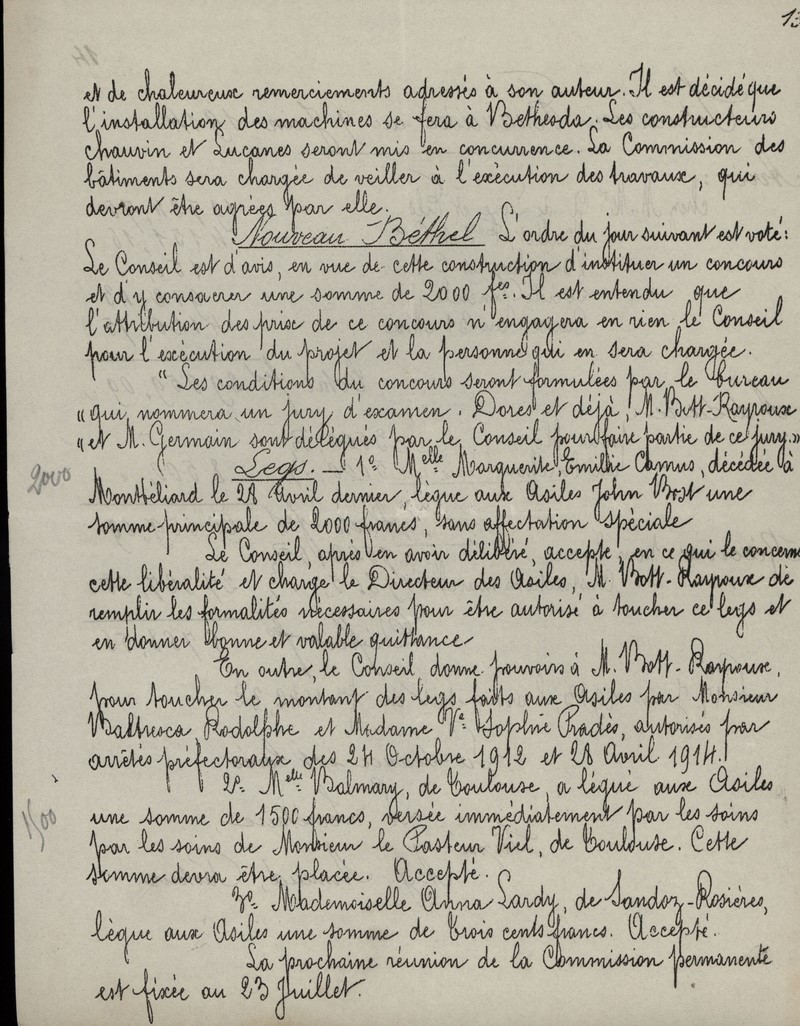 13
et de chaleureux remerciements adressés à son auteur. Il est décidé que
l'installation des machines se fera à Bethesda. Les constructeurs
Chauvin et Lucanes seront mis en concurrence. La Commission des
bâtiments sera chargée de veiller à l'exécution des travaux, qui
devront être agréés par elle.
Nouveau Béthel L'ordre du jour suivant est voté:
Le Conseil est d'avis, en vue de cette construction d'instituer un concours
et d'y consacrer une somme de 2000 fcs. Il est entendu que
l'attribution des prix de ce concours n'engagera en rien le Conseil
pour l'exécution du projet et la personne qui en sera chargée.
" Les conditions du concours seront formulées par le bureau
" qui nommera un jury d'examen. Dores et déjà, M. Bott-Rayroux
" et M. Germain sont délégués par le Conseil pour faire partie de ce jury."
Legs. — 1º Melle Marguerite, Emilie Camus, décédée à
2000
Montbéliard le 28 Avril dernier, lègue aux Asiles John Bost une
somme principale de 2000 francs, sans affectation spéciale
Le Conseil, après en avoir délibéré, accepte, en ce qui le concerne
cette libéralité et charge le Directeur des Asiles, M. Bott-Rayroux de
remplir les formalités nécessaires pour être autorisé à toucher ce legs et
en donner bonne et valable quittance
En outre, le Conseil donne pouvoirs à M. Bott-Rayroux,
pour toucher le montant des legs faits aux Asiles par Monsieur
Baltresca Rodolphe et Madame Ve Sophie Pradès, autorisés par
arrêtés préfectoraux des 24 Octobre 1912 et 28 Avril 1914.
2º Melle Balmary, de Toulouse, a légué aux Asiles
1500
une somme de 1500 francs, versée immédiatement par les soins
par les soins de Monsieur le Pasteur Viel, de Toulouse. Cette
somme devra être placée. Accepté.
3º Mademoiselle Anna Lardy, de Sandoz-Rosières,
lègue aux Asiles une somme de Trois cents francs. Accepté.
La prochaine réunion de la Commission permanente
est fixée au 23 Juillet.